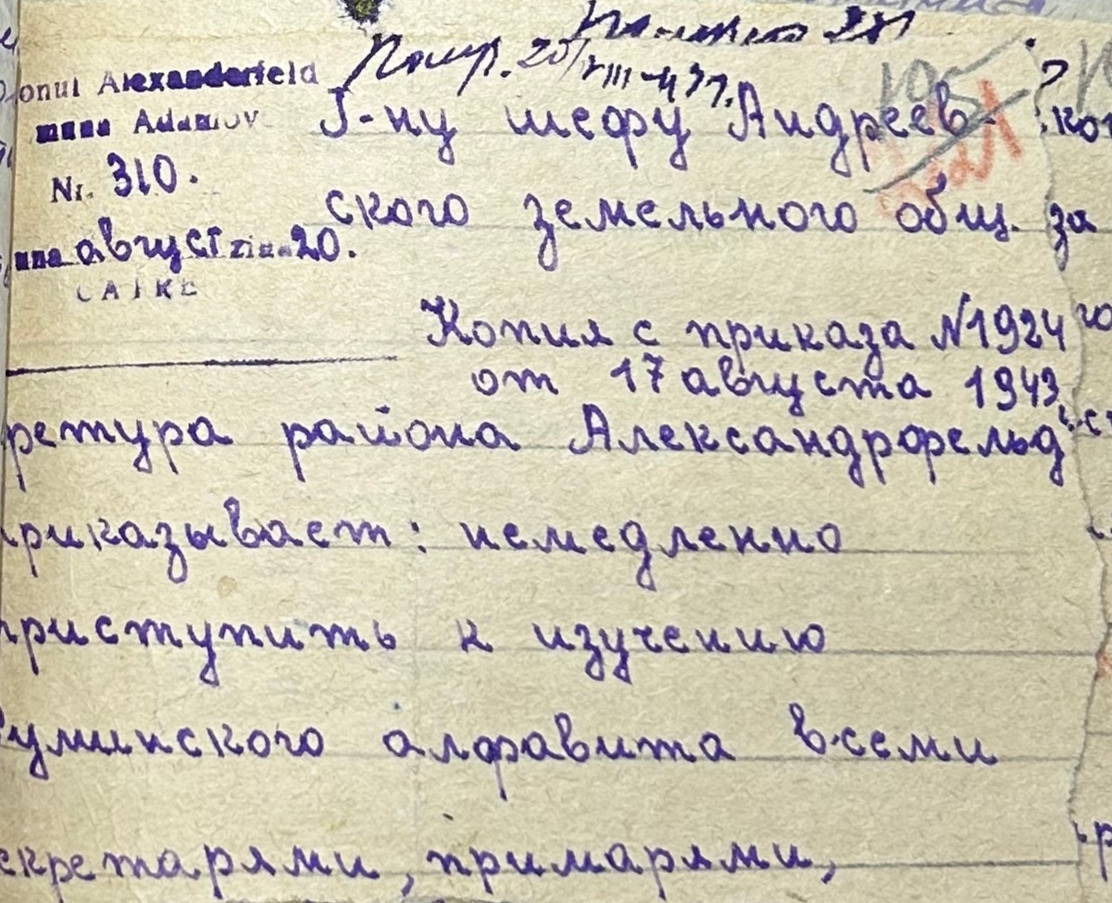 onul Alexanderfeld
Adamov
Nr. 310.
август 20.
Получ. 20/VIII-43 г.
Г-ну шефу Андреев-
ского земельного общ.
Копия с приказа №1924
от 17 августа 1943
ретура района Александрфельд
приказывает: немедленно
приступить к изучению
румынского алфавита всеми
екретарями, примарями,